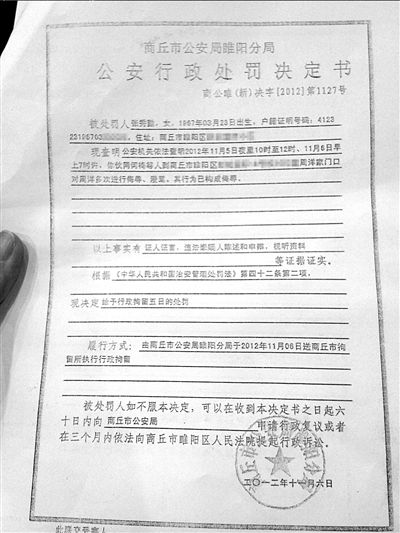 商丘市公安局睢阳分局
公安行政处罚决定书
商公睢（新）决字[2012]第1127号
被处罚人张秀勤，女，1967年03月23日出生，户籍证明号码：4123
23196703 ，住址：商丘市睢阳区
现查明公安机关依法查明2012年11月5日夜里10时至12时、11月6日早
上7时许，你伙同 等人到商丘市睢阳区 周洋家门口
对周洋多次进行侮辱、谩骂，其行为已构成侮辱。
以上事实有 证人证言，违法嫌疑人陈述和申辩，视听资料
等证据证实。
根据 《中华人民共和国治安管理处罚法》第四十二条第二项，
现决定 给予行政拘留五日的处罚
履行方式： 由商丘市公安局睢阳分局于2012年11月06日送商丘市拘
留所执行行政拘留
被处罚人如不服本决定，可以在收到本决定书之日起六
十日内向 商丘市公安局 申请行政复议或者
在三个月内依法向商丘市睢阳区人民法院提起行政诉讼。
商丘市公安局睢阳分局
二〇一二年十一月六日